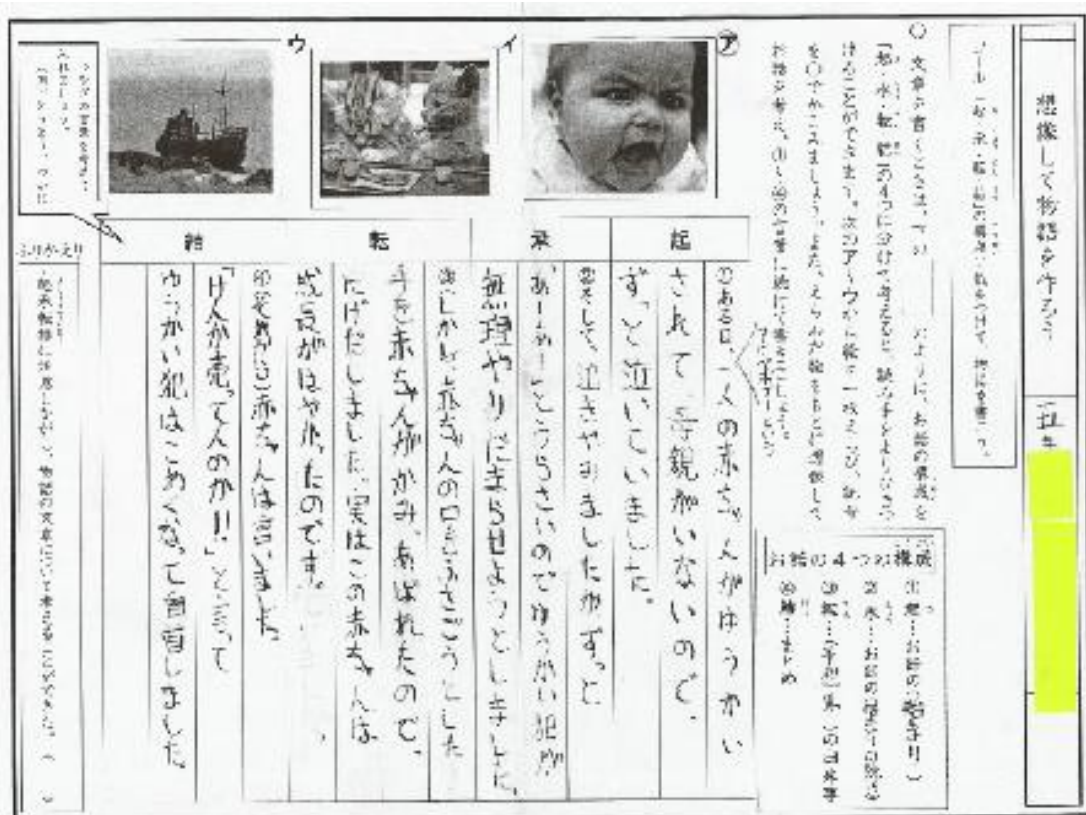 想像して物語を作ろう
ゴール「起・承・転・結」の構成に気をつけて、物語を書こう。
○ 文章を書くときは、下の
のように、お話の構成を
「起・承・転・結」の4つに分けて考えると、読み手をよりひきつ
けることができます。次のア〜ウから絵を一枚えらび、記号
を○でかこみましょう。また、えらんだ絵をもとに想像して
お話を考え、①〜④の言葉に続けて書きましょう。
お話の4つの構成
①起…お話の
②承…お話の
③転…
④結…まとめ
ア
イ
ウ
起
①ある日、一人の赤ちゃんがゆうかい
されて、母親がいないので、
ずっと泣いていました。
承
②そして、泣きやみましたがずっと
あーあーとうるさいのでゆうかい犯が
無理やりだまらせようとしましたが、
転
③しかし、赤ちゃんの口をふさごうとした
手を赤ちゃんがかみ、あばれたので、
にげだしました。実はこの赤ちゃんは
成長がはやかったのです。
結
赤ちゃんは言いました。
「けんか売ってんのか!!」と言って
ゆうかい犯はこわくなって自首しました。
ふりかえり
起承転結に注意しながら、物語の文章について考えることができた。( )